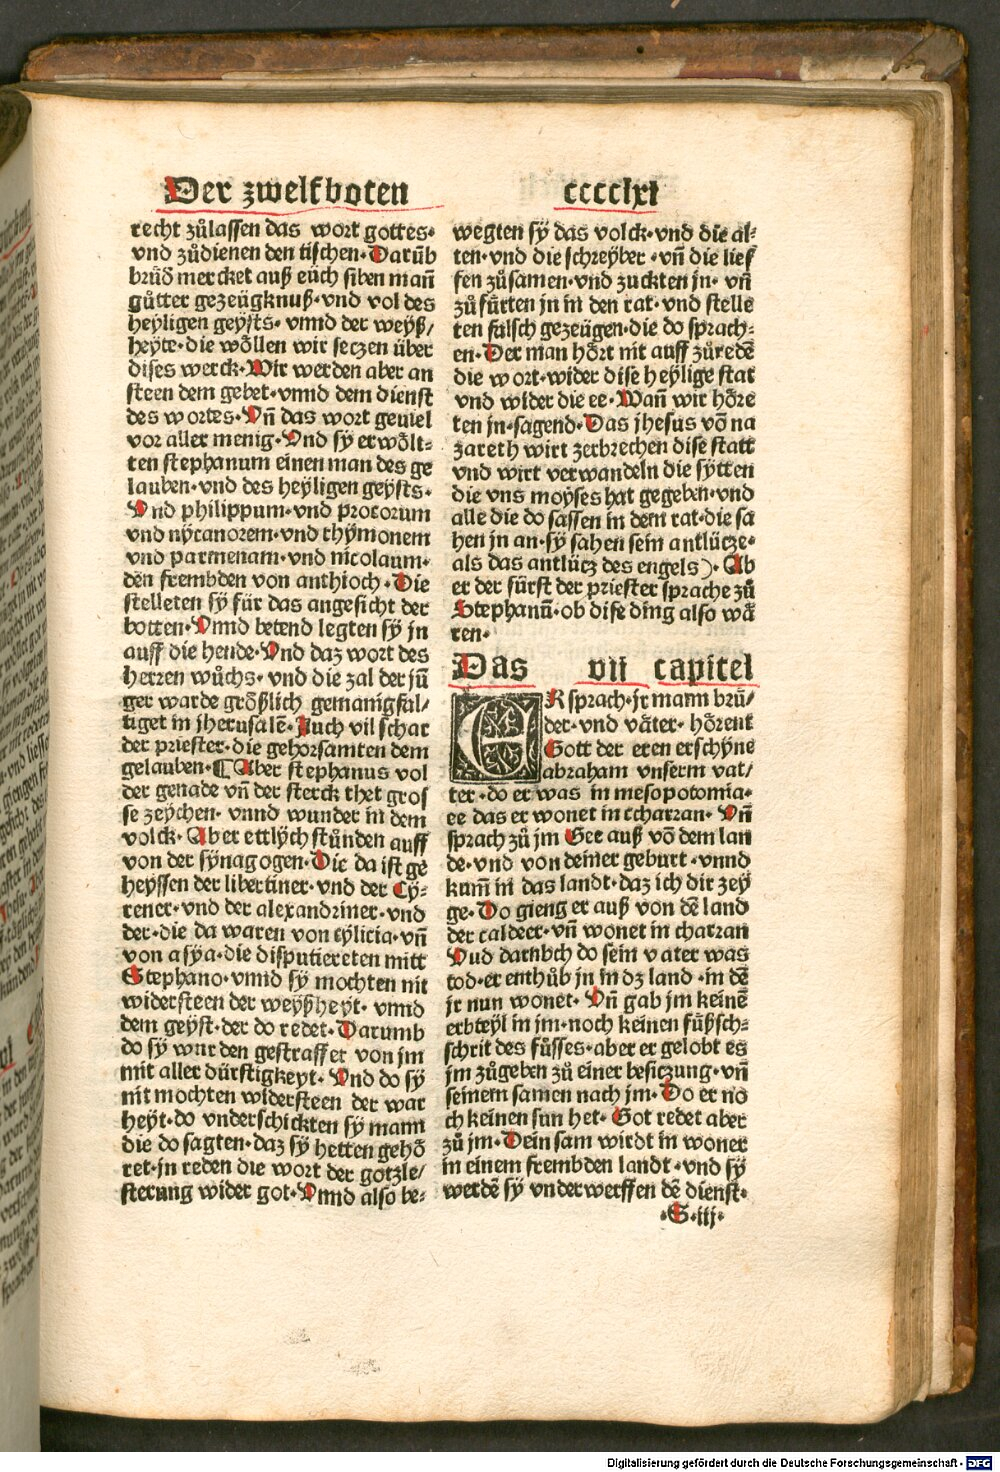 Der zwelfboten
cccclxi
recht zůlassen das wort gottes·
vnd zůdienen den tischen· Darũb
brůð mercket auß eüch siben mañ
gůtter gezeügknuß· vnd vol des
heyligen geysts· vnnd der weyß/
heyte· die wöllen wir seczen über
dises werck· Wir werden aber an
steen dem gebet· vnnd dem dienst
des wortes· Vñ das wort geuiel
vor aller menig· Vnd sy erwölt⸗
ten stephanum einen man des ge
lauben· vnd des heyligen geysts·
Vnd philippum· vnd procorum
vnd nycanorem· vnd thymonem
vnd parmenam· vnd nicolaum·
den frembden von anthioch· Die
stelleten sy für das angesicht der
botten· Vnnd betend legten sy jn
auff die hende· Vnd daz wort des
herren wůchs· vnd die zal der jü
ger warde größlich gemanigfal/
tiget in jherusalẽ· Auch vil schar
der priester· die gehorsamten dem
gelauben· ¶ Aber stephanus vol
der genade vñ der sterck thet gros
se zeychen· vnnd wunder in dem
volck· Aber ettlych stůnden auff
von der synagogen· Die da ist ge
heyssen der libertiner· vnd der Cy⸗
rener· vnd der alexandriner· vnd
der· die da waren von cylicia· vñ
von asya· die disputiereten mitt
Stephano· vnnd sy mochten nit
widersteen der weyßheyt· vnnd
dem geyst· der do redet· Darumb
do sy wurden gestraffet von jm
mit aller dürstigkeyt· Vnd do sy
nit mochten widersteen der war
heyt· do vnderschickten sy mann
die do sagten· daz sy hetten gehö
ret· jn reden die wort der gotzle/
sterung wider got· Vnnd also be⸗
wegten sy das volck· vnd die al⸗
ten· vnd die schreyber· vñ die lief
fen zůsamen· vnd zuckten jn· vñ
zůfürten jn in den rat· vnd stelle
ten falsch gezeügen· die do sprach⸗
en· Der man hört nit auff zůredẽ
die wort· wider dise heylige stat
vnd wider die ee· Wañ wir höre
ten jn· sagend· Das jhesus võ na
zareth wirt zerbrechen dise statt
vnd wirt verwandeln die sytten
die vns moyses hat gegeben· vnd
alle die do sassen in dem rat· die sa
hen jn an· sy sahen sein antlücze·
als das antlücz des engels)· Ab
er der fürst der priester sprache zů
Stephanũ· ob dise ding also wä
ren·
Das vii capitel
ER sprach· jr mann brü/
der· vnd väter· hörent
Gott der eren erschyne
abraham vnserm vat/
ter· do er was in mesopotomia·
ee das er wonet in charran· Vñ
sprach zů jm Gee auß võ dem lan
de· vnd von deiner geburt· vnnd
kum̃ in das landt· daz ich dir zey
ge· Do gieng er auß von dẽ land
der caldeer· vñ wonet in charran
Vud darnbch do sein vater was
tod· er enthůb jn in dz land· in dẽ
jr nun wonet· Vñ gab jm keinẽ
erbteyl in jm· noch keinen fůßsch⸗
schrit des fůsses· aber er gelobt es
jm zůgeben zů einer besiczung· vñ
seinem samen nach jm· Do er no
ch keinen sun het· Got redet aber
zů jm· Dein sam wirdt in woner
in einem frembden landt· vnd sy
werdẽ sy vnderwerffen dẽ dienst·
·S·iij·
Digitalisierung gefördert durch die Deutsche Forschungsgemeinschaft - DFG